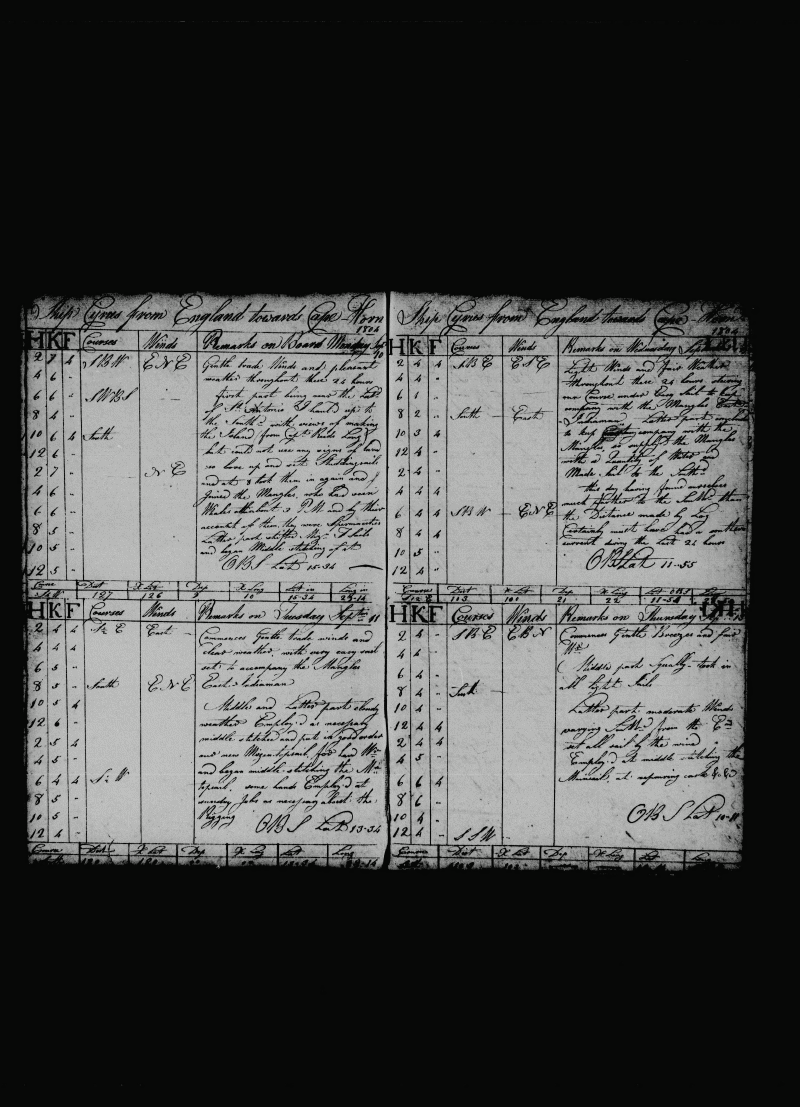 Ship Cyrus from England towards Cape Horn
1804
H K F Courses Winds Remarks on Board Monday Sept 10
2 7 4 S B W E N E Gentle trade Winds and pleasant
4 6 " weather throughout these 24 hours
6 6 " S W B S first part being near the Lat
8 4 - of St Antonio I haul'd up to
the South'd with views of making
10 6 4 South the Island from Capt Long
12 6 - but could not see any signs of land
so bore up and sett Studdingsails
2 7 " N E and at 8 took them in again and
4 6 " Joined the Mangles, who had seen
6 6 " 3 P.M and by their
account of them they were Spermaceti
8 5 " Latter part shifted
10 5 " and began Middle stitching of it
12 5 " OBS Lat 15-34
Course Dist D Lat Dep D Long Lat in Long in
127 126 10 15-34
H K F Courses Winds Remarks on Tuesday Sept 11
2 4 4 S E East Commences Gentle trade winds and
4 4 4 clear weather, with very easy sail
6 5 " set to accompany the Mangles
8 5 " South E N E East Indiaman
10 5 4 Middle and Latter parts cloudy
12 6 - weather Employ'd as necessary
2 5 4 middle stitched and put in good order
4 5 - our new Mizen topsail, for hard Wr
6 4 4 S W and began middle stitching the Mn
topsail, some hands Employ'd at
8 5 - sunday Jobs as necessary about the
10 5 - Rigging
12 4 - OBS Lat 13-34
Course Dist D Lat Dep D Long Lat Long
Ship Cyrus from England towards Cape Horn
1804
H K F Courses Winds Remarks on Wednesday
2 4 4 S B E E N E Light Winds and fair Weather
4 4 4 throughout these 24 hours steering
6 1 " our Course under Easy sail to keep
company with the Mangles East
8 2 " South East Indiaman Latter part
10 3 4 to keep company with the
12 4 - Mangles, we supply'd the Mangles
with a Quantity of Water and
2 4 - Made sail to the South'd
4 4 4 this day having found ourselves
much further to the South'd than
6 4 4 S B W E N E the Distance made by Log
8 4 4 Certainly must have had a southern
current during the last 24 hours
10 5 -
12 4 - OBS Lat 11-55
Courses Dist D Lat Dep D Long Lat OBS
103 101 21 22 11-54
H K F Courses Winds Remarks on Thursday
2 4 - S B E E B N Commences Gentle Breezes and fair
4 4 Wr
6 4 - Middle part squally took in
8 4 - South all light Sails
10 4 - Latter part moderate Winds
12 4 4 varying from the E
2 4 4 set all sail by the wind
4 5 - Employ'd at middle stitching the
6 6 4 Mainsail, at repairing cask &c &c
8 6 -
10 4 - OBS Lat
12 4 - S S W
Course Dist D Lat Dep D Long Lat Long